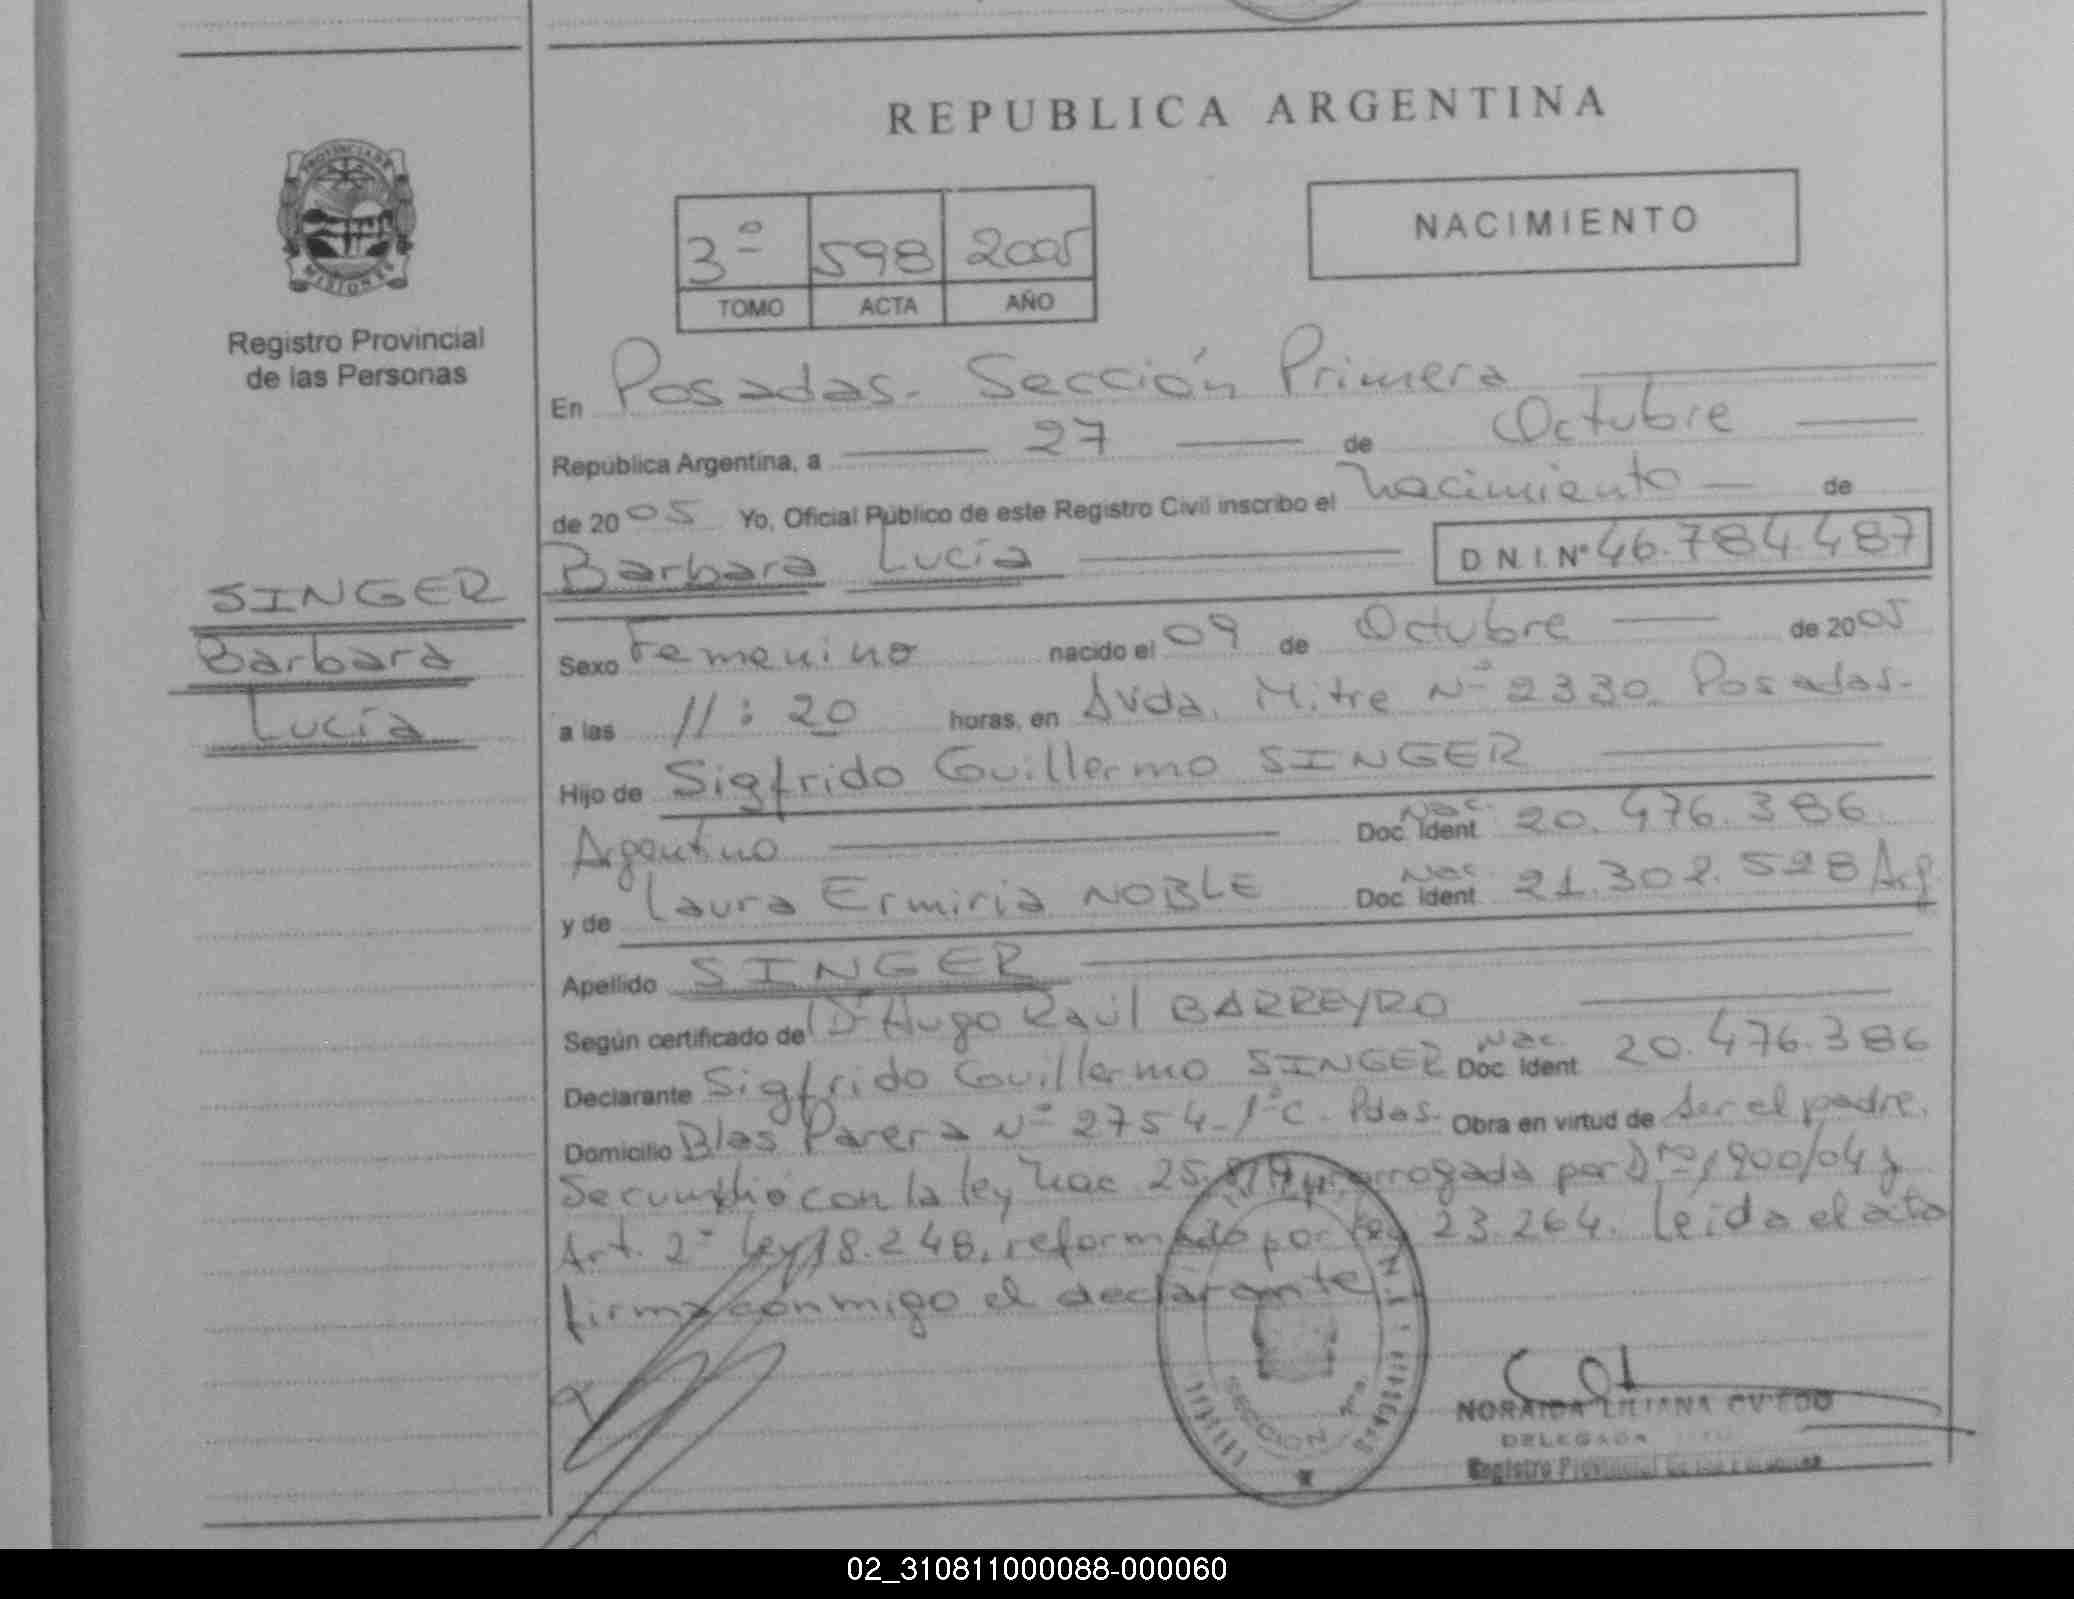 REPUBLICA ARGENTINA
PROVINCIA DE
MISIONES
Registro Provincial
de las Personas
3º 598 2005
TOMO ACTA AÑO
NACIMIENTO
En Posadas. Sección Primera
República Argentina, a 27 de Octubre
de 2005 Yo, Oficial Público de este Registro Civil inscribo el Nacimiento de
Barbara Lucía D.N.I.Nº 46.784.487
SINGER
Barbara
Lucía
Sexo Femenino nacido el 09 de Octubre de 2005
a las 11:20 horas, en Avda. Mitre Nº 2330. Posadas.
Hijo de Sigfrido Guillermo SINGER
Argentino Nac. Doc. Ident. 20.476.386
y de Laura Ermiria NOBLE Nac. Doc. Ident. 21.302.528 Arg
Apellido SINGER
Según certificado de Dr Hugo Raúl BARREYRO
Declarante Sigfrido Guillermo SINGER Nac. Doc. Ident. 20.476.386
Domicilio Blas Parera Nº 2754-1ºC-Pdas. Obra en virtud de ser el padre.
Se cumplió con la ley Nac 25. prorrogada por Dto 1,900/04 y
Art. 2º Ley 18.248, reformado por ley 23.264. Leída el acta
firma conmigo el declarante
SECCION 1ra.
NORAIDA LILIANA OVIEDO
DELEGADA
Registro Provincial de las Personas
02_310811000088-000060